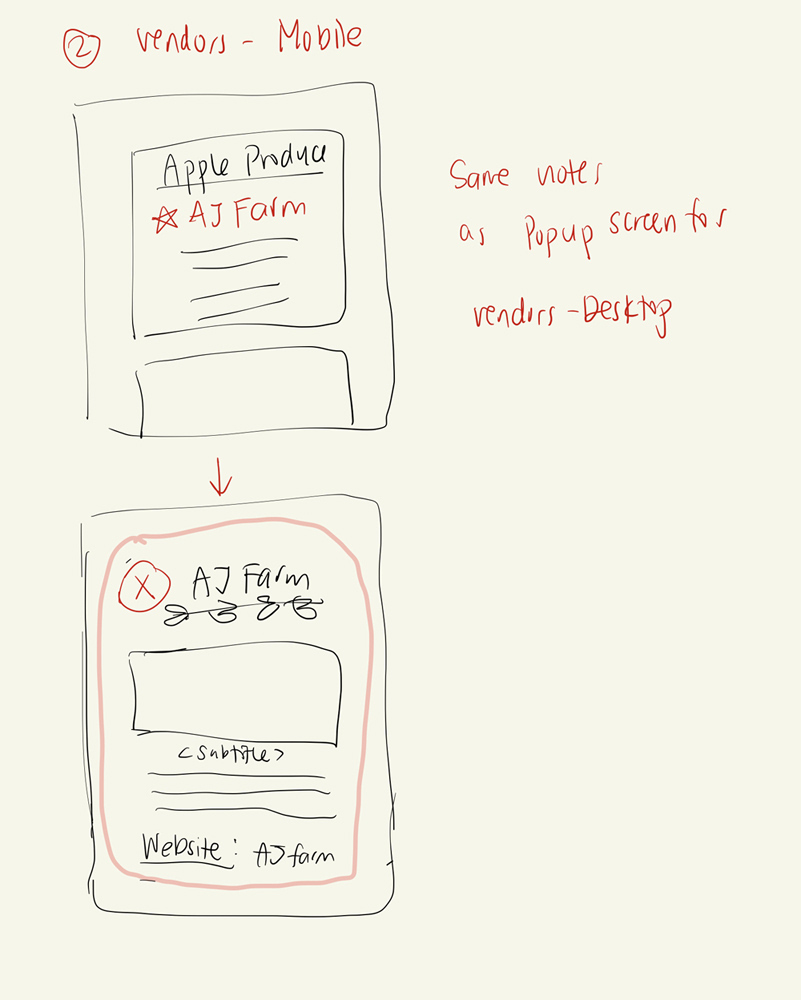 2 vendors - Mobile
Apple Produce
AJ Farm
Same notes
as Popup screen for
vendors - Desktop
X AJ Farm
<subtitle>
Website: AJ farm